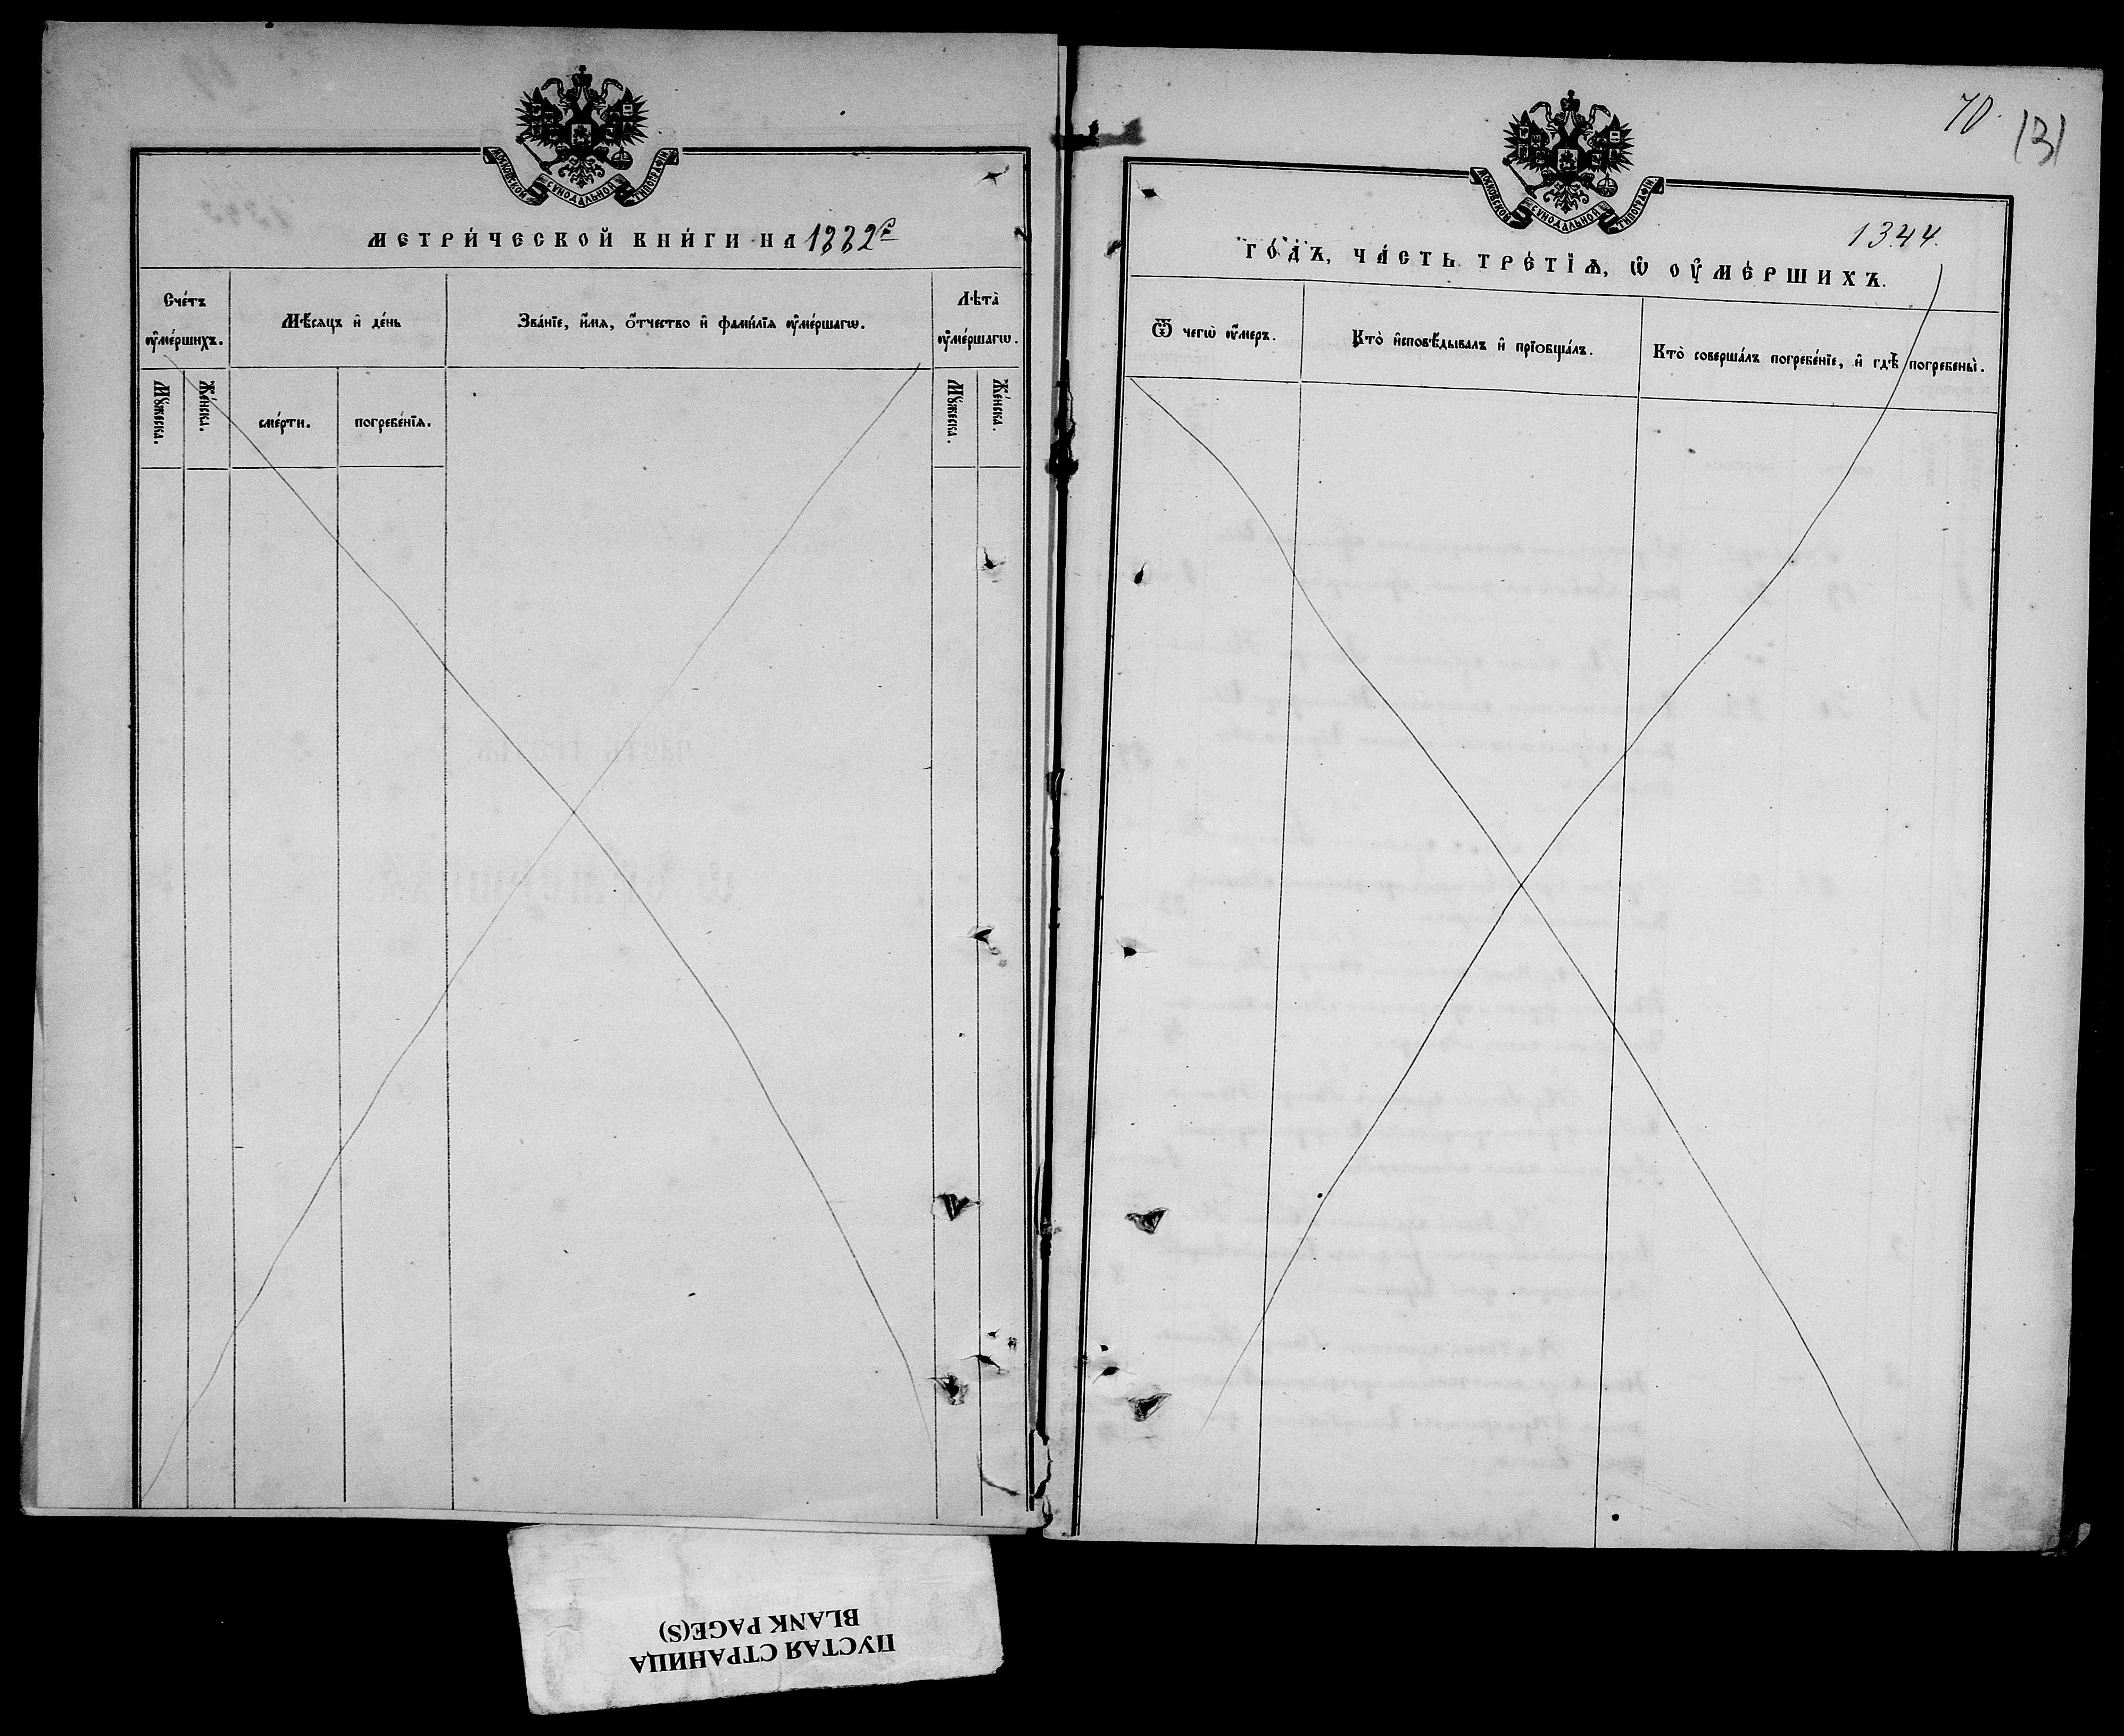 МОСКОВСКОЙ СѴНОДАЛЬНОЙ ТИПОГРАФІИ.
МЕТРИ́ЧЕСКОЙ КНИ́ГИ НА 1882 г
Сче́тъ ᲂу҆ме́ршихъ.
Мѣ́сяцъ и҆ де́нь
Зва́нїе, и҆́мѧ, ѻ҆́тчество и҆ фами́лїѧ ᲂу҆ме́ршагѡ.
Лѣта̀ ᲂу҆ме́ршагѡ.
Мꙋ́жеска.
Же́нска.
сме́рти.
погребе́нїѧ.
Мꙋ́жеска.
Же́нска.
70.
131
МОСКОВСКОЙ СѴНОДАЛЬНОЙ ТИПОГРАФІИ.
1344.
ГО́ДЪ, ЧА́СТЬ ТРЕ́ТЇѦ, Ѡ҆ ОУ҆МЕ́РШИХЪ.
Ѿ чегѡ̀ ᲂу҆́меръ.
Кто̀ и҆сповѣ́дывалъ и҆ прїѡбща́лъ.
Кто̀ соверша́лъ погребе́нїе, и҆ гдѣ̀ погребены̀.
ПУСТАЯ СТРАНИЦА
BLANK PAGE(S)